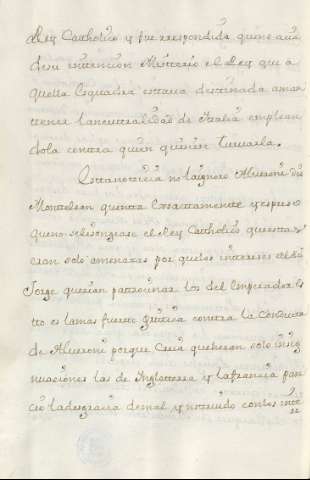 Rey Catholico y fue respondido quiné aun
deni intencion Misterio el Rey que a
quella Esquadra estava destinada aman
tener la neutralidad de Italia emplean
dola contra quien quisiese turvarla.
Esta noticia no la ignoro Alveroni
Monteleon quanto Exsactamente y respus
que no selisongease el Rey Catholico que esttas
eran solo amenazas por que los intereses del Rey
Jorge querian patrocinar los del Emperador Es
tto es la mas fuerte critica contra la conducta
de Alveroni porque Creia que heran solo insig
nuaciones las de Inglatterra y la francia pare
cio la desgracia de mal y no tenido con los